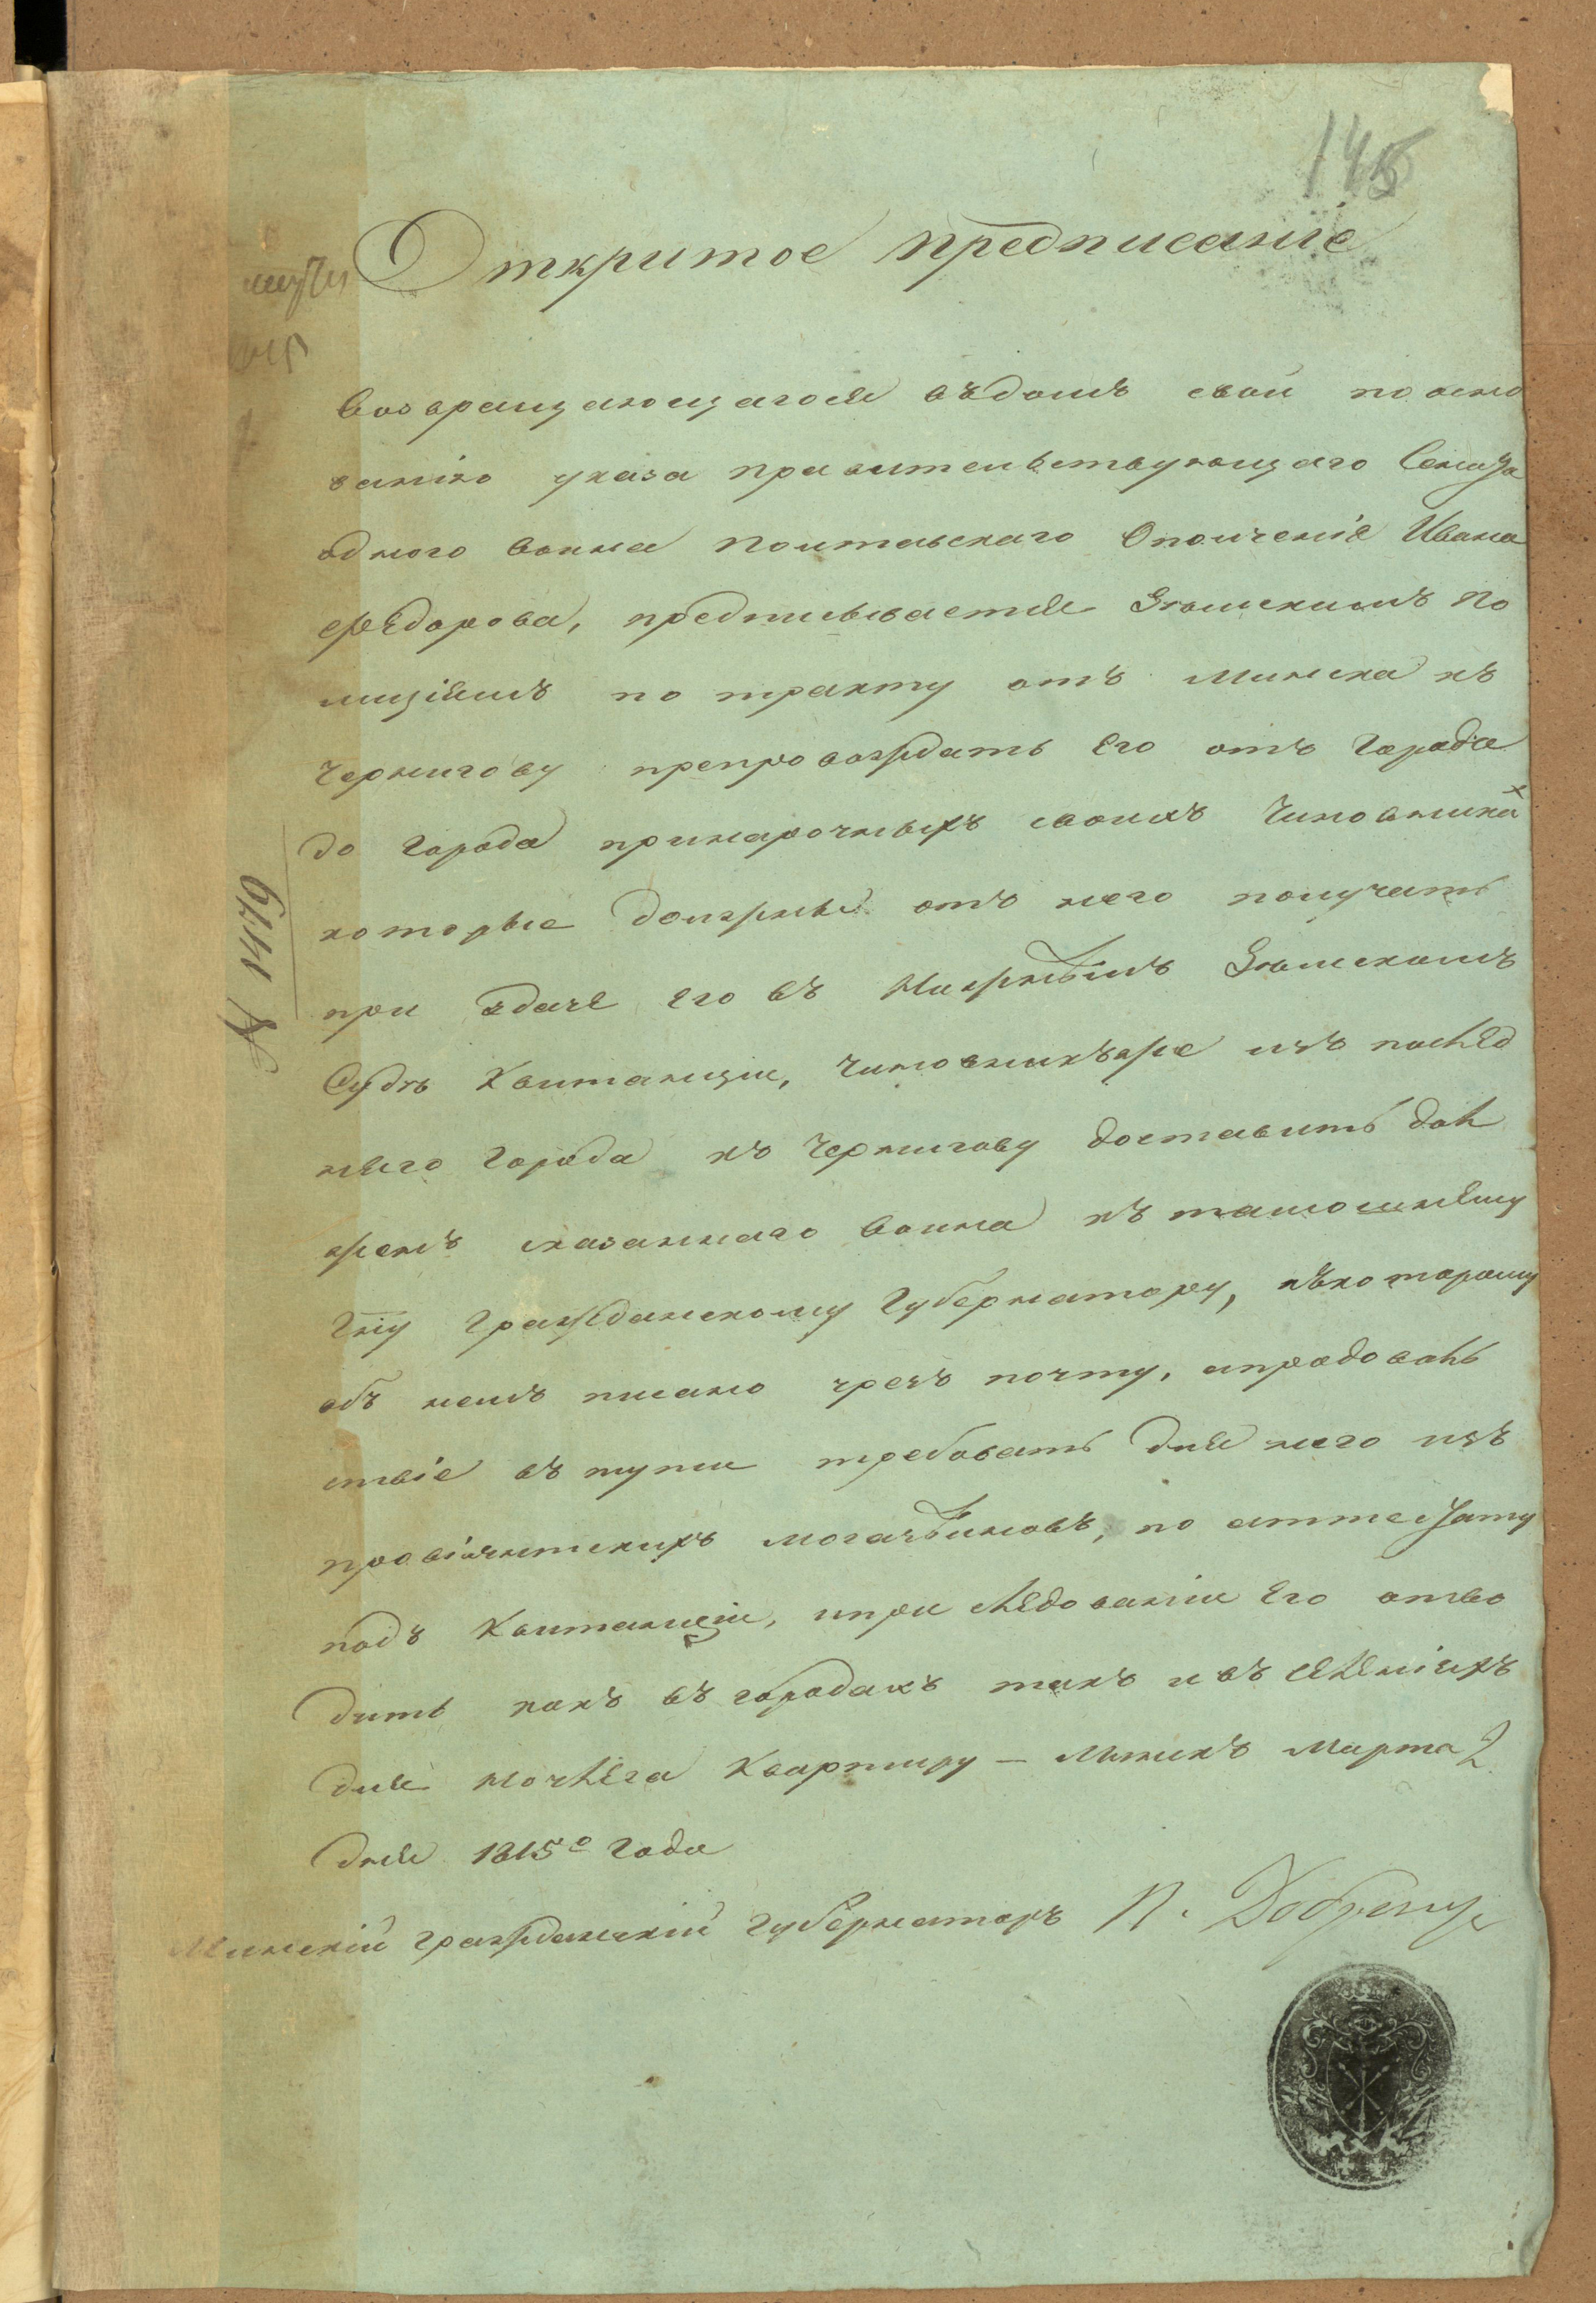 145
Открито​е предписаніе
возвращающагося въдомъ свой по осно
ванію указа правительствующаго Сената
одного воина Полтавскаго Ополченіе Ивана
Федорова, предписывается Земскимъ По
лиціямъ по тракту отъ Минска къ
Чернигову препровождать Его отъ Города
до Города принарочныхъ своихъ Чиновникахъ
которые должны отъ него получать
при здаче Его въ Нижнемъ Земскомъ
Суде Квитанции, Чиновникъже изъ послед
няго Города къ Чернигову доставить дол
женъ сказанного воина къ тамошнему
Гну Гражданскому Губернатору, къкоторому
объ немъ писано чрезъ почту, апродоволь
ствіе въ пути требовать для него изъ
провіянтскихъ могазеиновъ, по аттестату
подъ Квитанции, ипри следованіи Его отво
дить какъ въ городахъ такъ и въ селеніяхъ
для ночлега Квартиру — Минскъ Марта 2
дня 1815го Года
Минскій гражданскій Губернаторъ П. Добрен
№ 1479